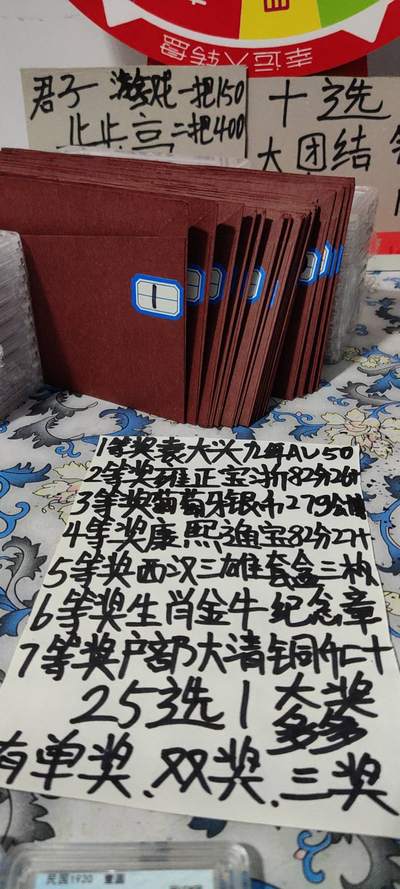 幸运大转盘
君子游戏一把150
二把400
十选
大团结
1
1等奖袁大头九年AU50
2等奖雍正宝浙82分26
3等奖葡萄牙银币279公
4等奖康熙渔宝82分2
5等奖西汉三雄套盒三枚
6等奖生肖金牛纪念章
7等奖户部大清铜币二十
25选1大奖
多多
有单奖.双奖.三奖
民国1920